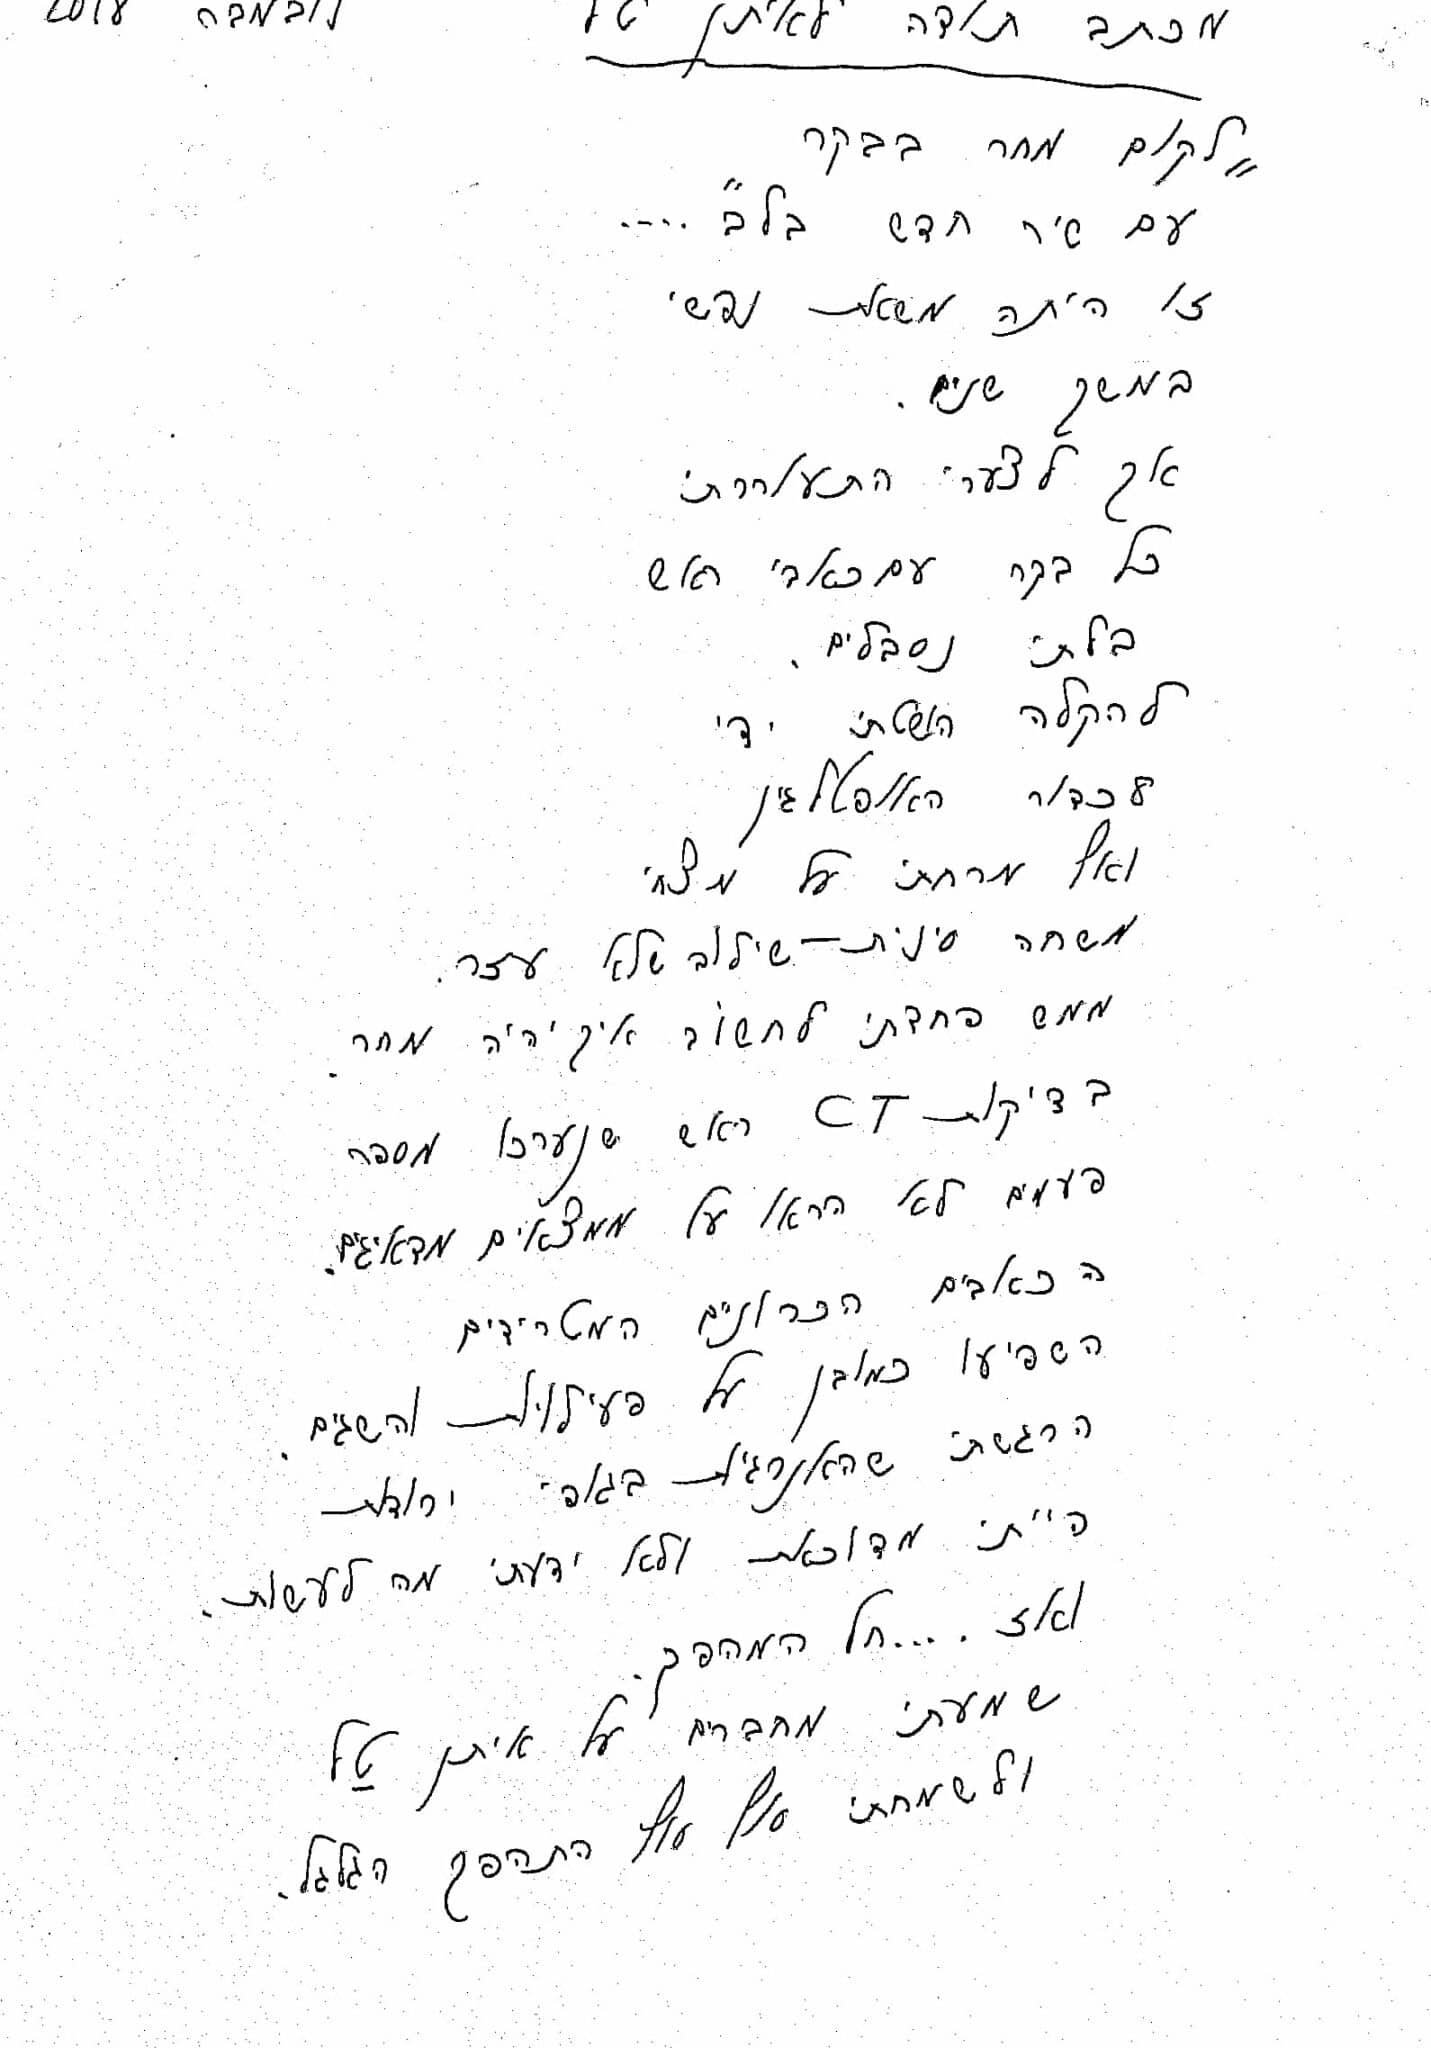 מכתב תודה לאיתן טל נובמבר
„לקום מחר בבקר
עם שיר חדש בלב"....
זו היתה משאת נפשי
במשך שנים.
אך לצערי התעוררתי
כל בקר עם כאבי ראש
בלתי נסבלים.
להקלה הושטתי ידי
לכדור האופטלגין
ואף מרחתי על מצחי
משחה סינית – שילוב שלא עזר.
ממש פחדתי לחשוב איך יהיה מחר.
בדיקות CT ראש שנערכו מספר
פעמים לא הראו על ממצאים מדאיגים.
הכאבים הכרוניים המטרידים
השפיעו כמובן על פעילויות והשגים.
הרגשתי שהאנרגיות בגופי יורדות
הייתי מדוכאת ולא ידעתי מה לעשות.
ואז .... חל המהפך.
שמעתי מחברים על איתן טַל
ולשמחתי סוף סוף התהפך הגלגל.